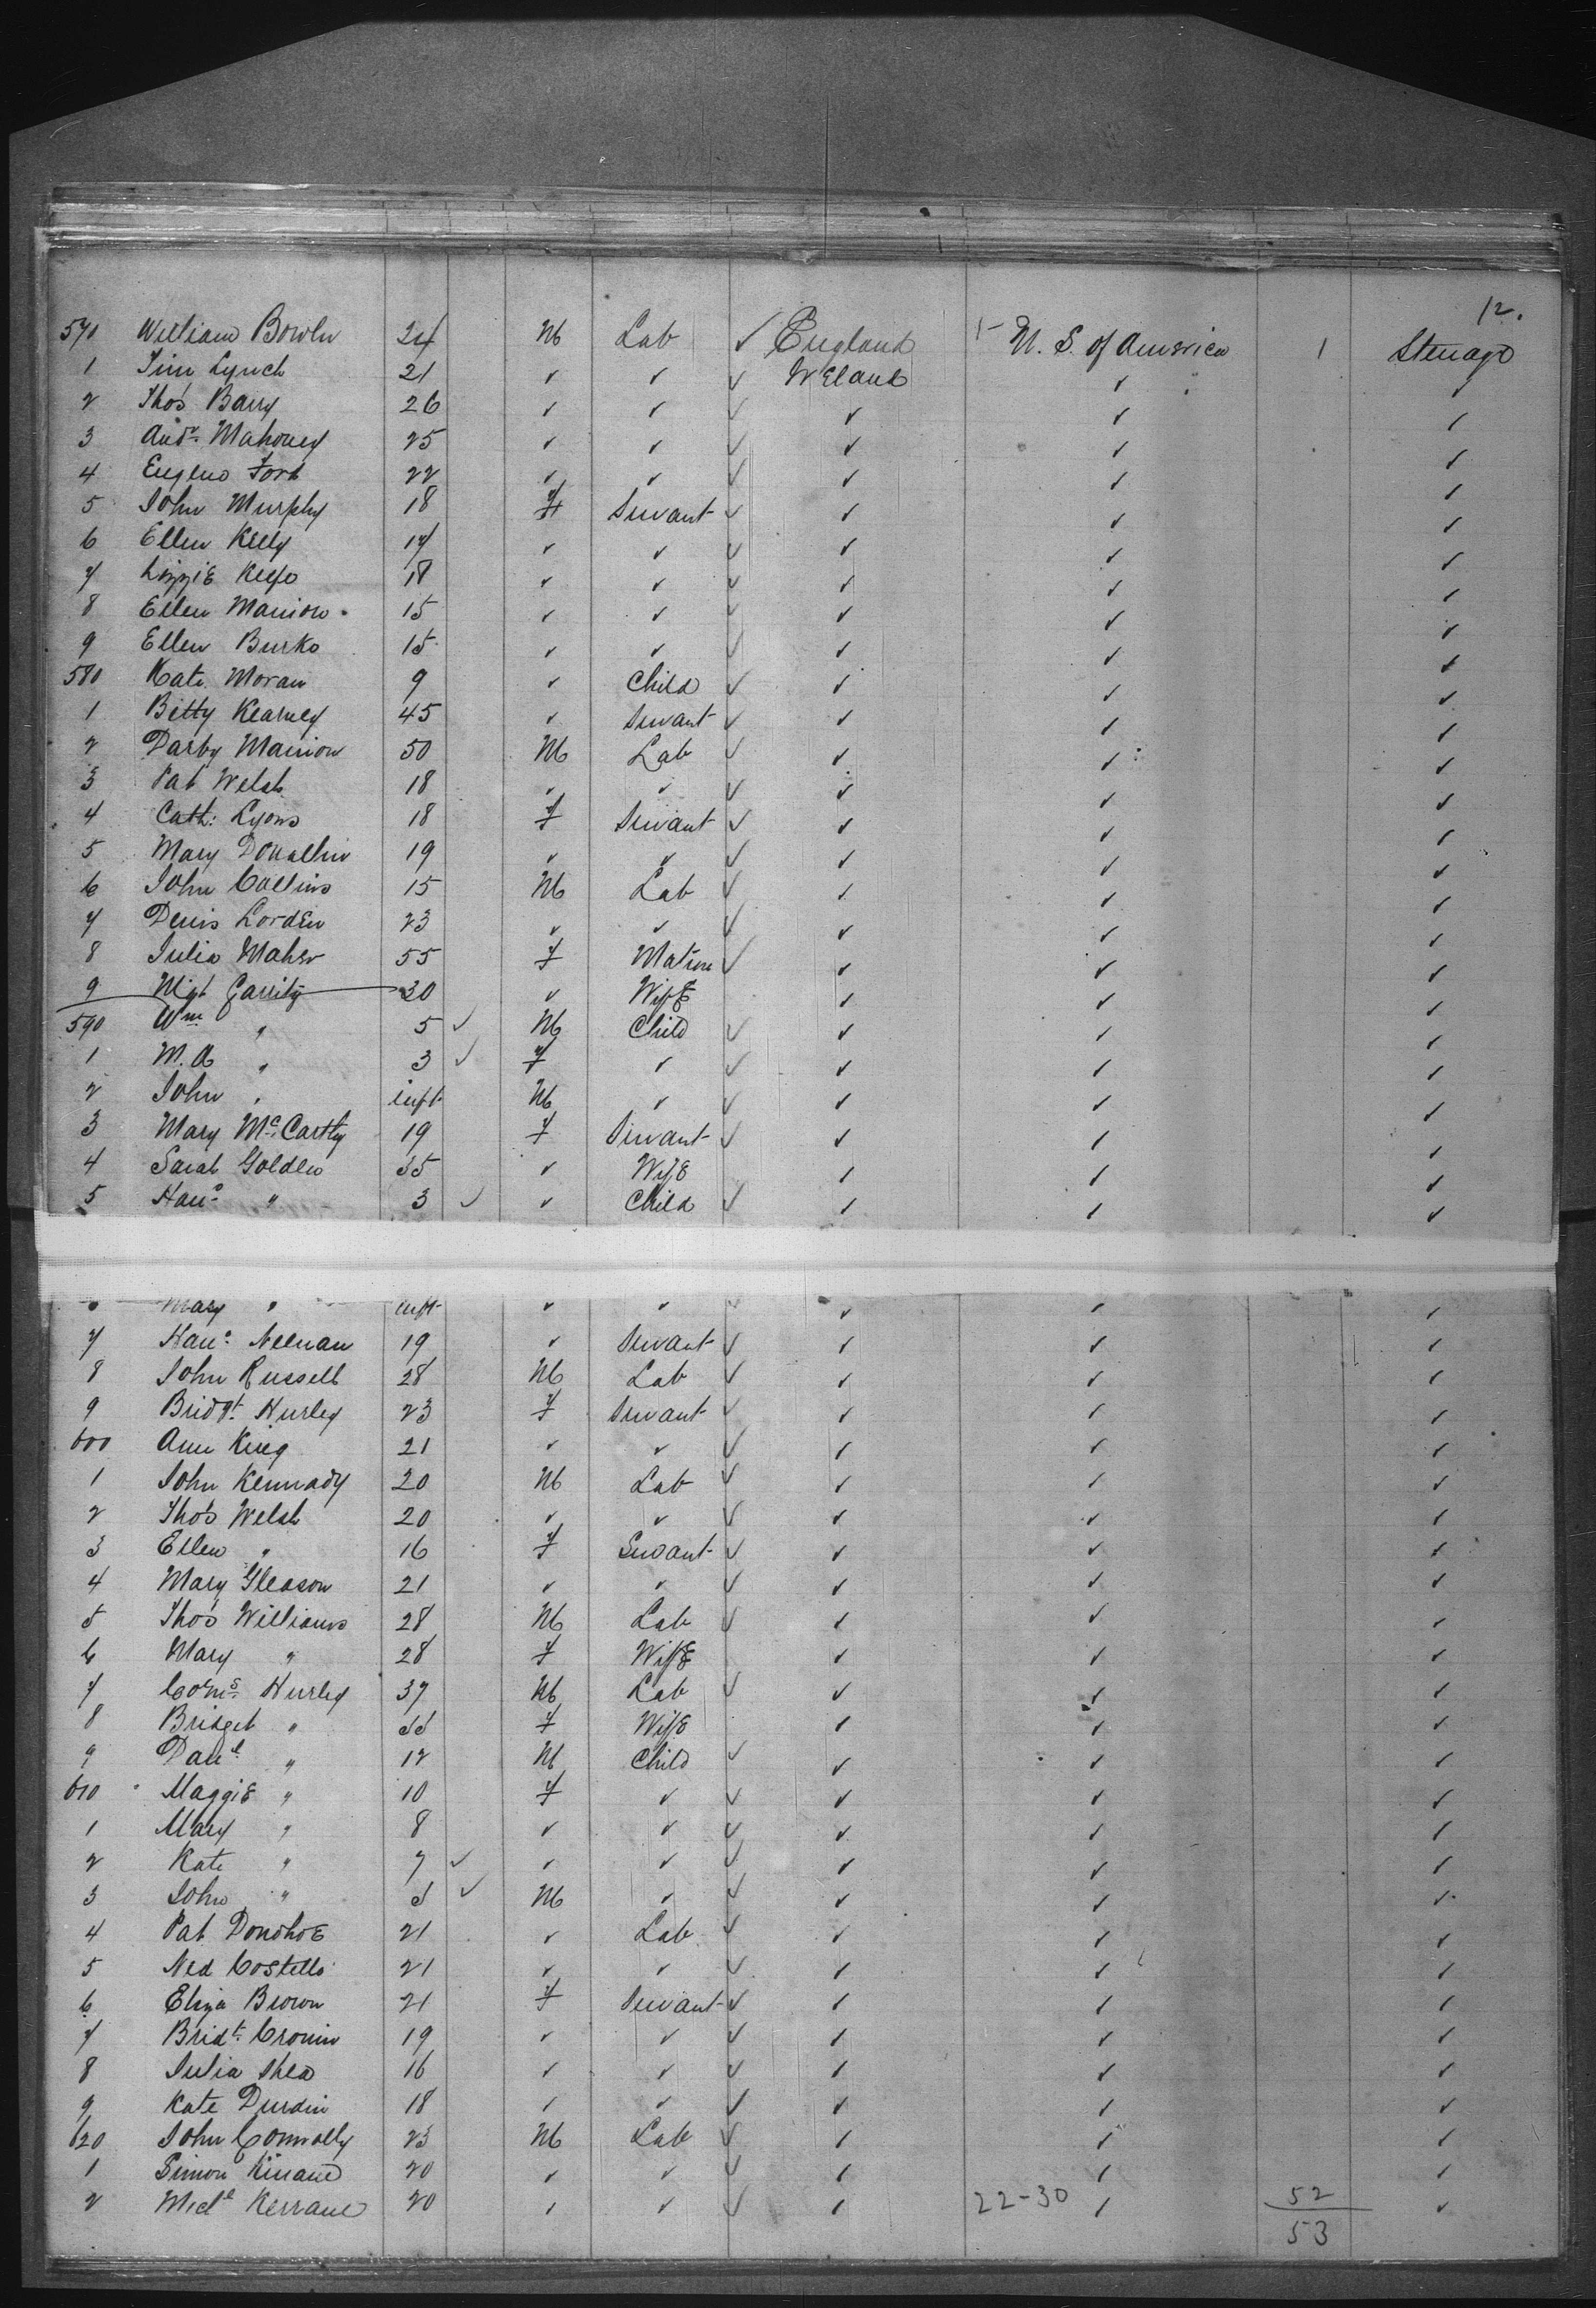 12.
570 William Bowler 24 M Lab ✓ England U. S. of America 1 Steerage
1 Tim Lynch 21 ✓ ✓ ✓ Ireland ✓ ✓
2 Thos Barry 26 ✓ ✓ ✓ ✓ ✓ ✓
3 Andw Mahoney 25 ✓ ✓ ✓ ✓ ✓ ✓
4 Eugene Fort 22 ✓ ✓ ✓ ✓ ✓ ✓
5 John Murphy 18 F Servant ✓ ✓ ✓ ✓
6 Ellen Kelly 17 ✓ ✓ ✓ ✓ ✓ ✓
7 Lizzie Keefe 18 ✓ ✓ ✓ ✓ ✓ ✓
8 Ellen Manion 15 ✓ ✓ ✓ ✓ ✓ ✓
9 Ellen Burke 15 ✓ ✓ ✓ ✓ ✓ ✓
580 Kate Moran 9 ✓ Child ✓ ✓ ✓ ✓
1 Betty Kearney 45 ✓ Servant ✓ ✓ ✓ ✓
2 Darby Manion 50 M Lab ✓ ✓ ✓ ✓
3 Pat Welsh 18 ✓ ✓ ✓ ✓ ✓ ✓
4 Cath: Lyons 18 F Servant ✓ ✓ ✓ ✓
5 Mary 19 ✓ ✓ ✓ ✓ ✓ ✓
6 John Collins 15 M Lab ✓ ✓ ✓ ✓
7 Denis Lorden 23 ✓ ✓ ✓ ✓ ✓ ✓
8 Julia Maher 55 F Matron ✓ ✓ ✓ ✓
9 Mgt Garrity 30 ✓ Wife ✓ ✓ ✓
590 Wm " 5 ✓ M Child ✓ ✓ ✓ ✓
1 M. A " 3 ✓ F ✓ ✓ ✓ ✓ ✓
2 John " inft M ✓ ✓ ✓ ✓ ✓
3 Mary McCarthy 19 F Servant ✓ ✓ ✓ ✓
4 Sarah Golden 35 ✓ Wife ✓ ✓ ✓
5 Hana " 3 ✓ ✓ Child ✓ ✓ ✓ ✓
Mary " inft ✓ ✓ ✓ ✓ ✓ ✓
7 Hana Neenan 19 ✓ Servant ✓ ✓ ✓ ✓
8 John Russell 28 M Lab ✓ ✓ ✓ ✓
9 Bridgt Hurley 23 F Servant ✓ ✓ ✓ ✓
600 Ann King 21 ✓ ✓ ✓ ✓ ✓ ✓
1 John Kennady 20 M Lab ✓ ✓ ✓ ✓
2 Thos Welsh 20 ✓ ✓ ✓ ✓ ✓ ✓
3 Ellen " 16 F Servant ✓ ✓ ✓ ✓
4 Mary Gleason 21 ✓ ✓ ✓ ✓ ✓ ✓
5 Thos Williams 28 M Lab ✓ ✓ ✓ ✓
6 Mary " 28 F Wife ✓ ✓ ✓
7 Corns Hurley 37 M Lab ✓ ✓ ✓ ✓
8 Bridget " 35 F Wife ✓ ✓ ✓
9 Danl " 12 M Child ✓ ✓ ✓ ✓
610 Maggie " 10 F ✓ ✓ ✓ ✓ ✓
1 Mary " 8 ✓ ✓ ✓ ✓ ✓ ✓
2 Kate " 7 ✓ ✓ ✓ ✓ ✓ ✓ ✓
3 John " ✓ M ✓ ✓ ✓ ✓ ✓
4 Pat Donohoe 21 ✓ Lab ✓ ✓ ✓ ✓
5 Ned Costello 21 ✓ ✓ ✓ ✓ ✓ ✓
6 Eliza Brown 21 F Servant ✓ ✓ ✓ ✓
7 Bridt Cronin 19 ✓ ✓ ✓ ✓ ✓ ✓
8 Julia Shea 16 ✓ ✓ ✓ ✓ ✓ ✓
9 Kate Durdin 18 ✓ ✓ ✓ ✓ ✓ ✓
620 John Connolly 23 M Lab ✓ ✓ ✓ ✓
1 Simon Kinane 20 ✓ ✓ ✓ ✓ ✓ ✓
2 Michl Kerrane 20 ✓ ✓ ✓ ✓ 22-30 ✓ 52 ✓
53